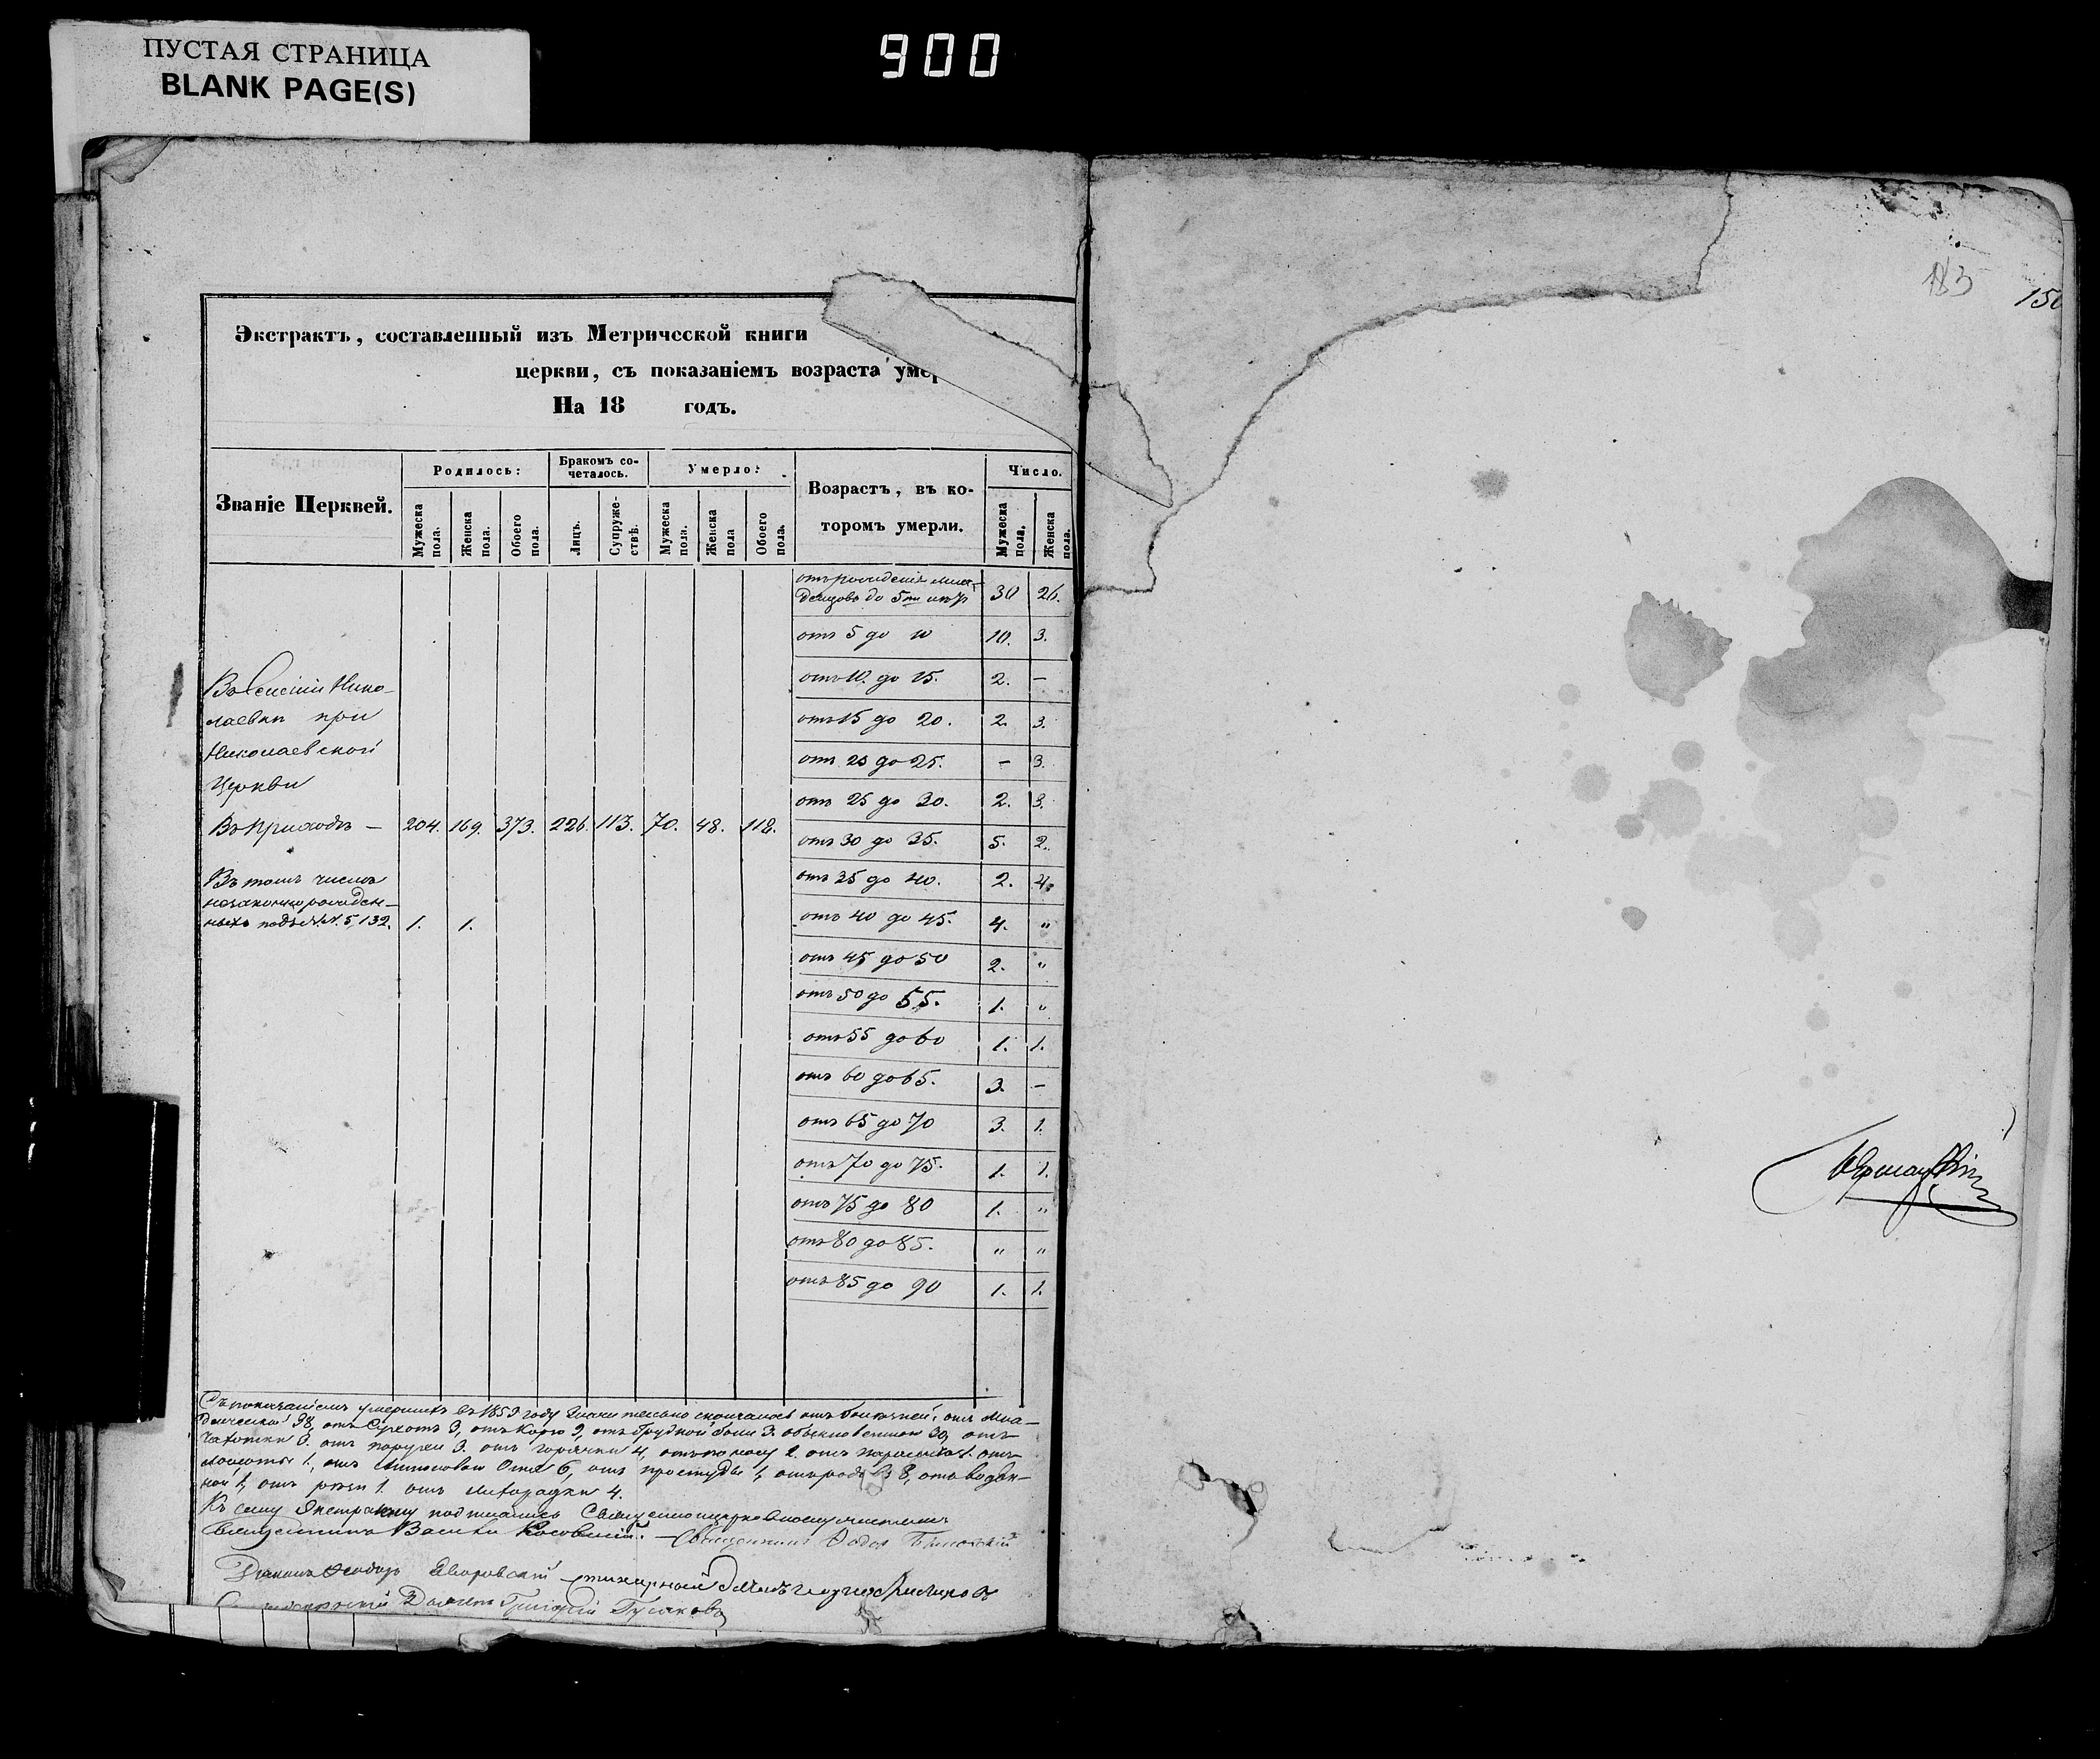 ПУСТАЯ СТРАНИЦА
BLANK PAGE(S)
900
183
150
Экстрактъ, составленный изъ Метрической книги
церкви, съ показаніемъ возраста умер
На 18 годъ.
Званіе Церквей.
Родилось:
Мужеска пола.
Женска пола.
Обоего пола.
Бракомъ со-
четалось.
Лицъ.
Супруже-
ствъ.
Умерло:
Мужеска пола.
Женска пола
Обоего пола.
Возрастъ, въ ко-
торомъ умерли.
Число.
Мужеска пола.
Женска пола.
отъ рожденія мла-
денцовъ до 5ти лѣтъ 30 26.
отъ 5 до 10 10. 3.
отъ 10. до 15. 2. –
отъ 15 до 20. 2. 3.
отъ 20 до 25. – 3.
отъ 25 до 30. 2. 3.
отъ 30 до 35. 5. 2.
отъ 35 до 40. 2. 4.
отъ 40 до 45. 4. "
отъ 45 до 50 2. "
отъ 50 до 55. 1. "
отъ 55 до 60 1. 1.
отъ 60 до 65. 3. –
отъ 65 до 70 3. 1.
отъ 70 до 75. 1. 1.
отъ 75 до 80 1. "
отъ 80 до 85. " "
отъ 85 до 90 1. 1.
Въ Селеніи Нико-
лаевки при
Николаевской
Церкви
Въ Приходѣ – 204. 169. 373. 226. 113. 70. 48. 118.
Въ томъ числѣ
незаконнорожден-
ныхъ подъ №№. 5, 132. 1. 1.
Съ показаніемъ умершихъ въ 1859 году скончалось отъ болѣзней: отъ Мла-
денческой 38, отъ Сухотъ 3, отъ Корю 9, отъ Грудной боли 3. обыкновенной 30, отъ
Чахотки 3. отъ 3. отъ горячки 4, отъ поносу 2. отъ паралича 1. отъ
1, отъ Огня 6, отъ простуды 1, отъ родовъ 8, отъ водян-
ной 1, отъ 1. отъ лихорадки 4.
Къ сему Экстракту подписались Священноцерковнослужители
Священникъ Василій – Священникъ
Діаконъ Ѳеодоръ Яворовскій
Дьячекъ Григорій Гусаковъ